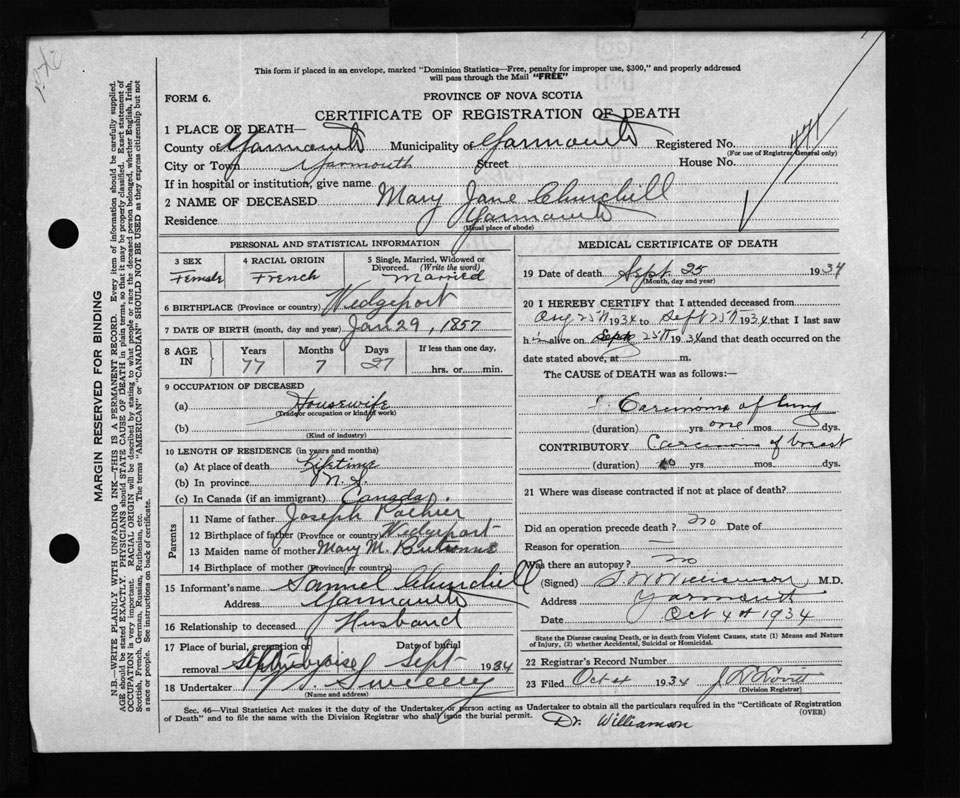 This form if placed in an envelope, marked "Dominion Statistics—Free, penalty for improper use, $300," and properly addressed
will pass through the Mail "FREE"
FORM 6.
PROVINCE OF NOVA SCOTIA
CERTIFICATE OF REGISTRATION OF DEATH
1 PLACE OF DEATH—
County of Yarmouth Municipality of Yarmouth Registered No. 471
(For use of Registrar General only)
City or Town Yarmouth Street House No.
If in hospital or institution, give name
2 NAME OF DECEASED Mary Jane Churchill
Residence Yarmouth
(Usual place of abode)
PERSONAL AND STATISTICAL INFORMATION
3 SEX 4 RACIAL ORIGIN 5 Single, Married, Widowed or
Divorced. (Write the word)
Female French Married
6 BIRTHPLACE (Province or country) Wedgeport
7 DATE OF BIRTH (month, day and year) Jan 29, 1857
8 AGE IN Years Months Days If less than one day,
77 7 27 hrs. or min.
9 OCCUPATION OF DECEASED
(a) Housewife
(Trade or occupation or kind of work)
(b)
(Kind of industry)
10 LENGTH OF RESIDENCE (in years and months)
(a) At place of death Lifetime
(b) In province N.S.
(c) In Canada (if an immigrant) Canada.
Parents
11 Name of father Joseph
12 Birthplace of father (Province or country) Wedgeport
13 Maiden name of mother Mary M.
14 Birthplace of mother (Province or country)
15 Informant's name Samuel Churchill
Address Yarmouth
16 Relationship to deceased Husband
17 Place of burial, cremation or Date of burial
removal Sept 1934
18 Undertaker Sweeny
(Name and address)
MEDICAL CERTIFICATE OF DEATH
19 Date of death Sept. 25 1934
(Month, day and year)
20 I HEREBY CERTIFY that I attended deceased from
Aug 25th 1934 to Sept 25th 1934 that I last saw
h alive on Sept 25th 1934 and that death occurred on the
date stated above, at m.
The CAUSE of DEATH was as follows:—
Carcinoma of lung
(duration) yrs one mos. dys.
CONTRIBUTORY Carcinoma of breast
(duration) yrs mos. dys.
21 Where was disease contracted if not at place of death?
Did an operation precede death? no Date of
Reason for operation —
Was there an autopsy? no
(Signed) Williamson, M.D.
Address Yarmouth
Date Oct 4th 1934
State the Disease causing Death, or in death from Violent Causes, state (1) Means and Nature
of Injury, (2) whether Accidental, Suicidal or Homicidal.
22 Registrar's Record Number
23 Filed Oct 4 1934
(Division Registrar)
Sec. 46—Vital Statistics Act makes it the duty of the Undertaker or person acting as Undertaker to obtain all the particulars required in the "Certificate of Registration
of Death" and to file the same with the Division Registrar who shall issue the burial permit.
(OVER)
Dr. Williamson
MARGIN RESERVED FOR BINDING
N.B.—WRITE PLAINLY WITH UNFADING INK—THIS IS A PERMANENT RECORD. Every item of information should be carefully supplied.
AGE should be stated EXACTLY. PHYSICIANS should STATE CAUSE OF DEATH in plain terms, so that it may be properly classified. Exact statement of
OCCUPATION is very important. RACIAL ORIGIN will be described by stating to what people or race the deceased person belonged, whether English, Irish,
Scottish, French, German, Russian, Ruthenian, etc. The terms "AMERICAN" or "CANADIAN" SHOULD NOT BE USED as they express citizenship but not
a race or people. See instructions on back of certificate.